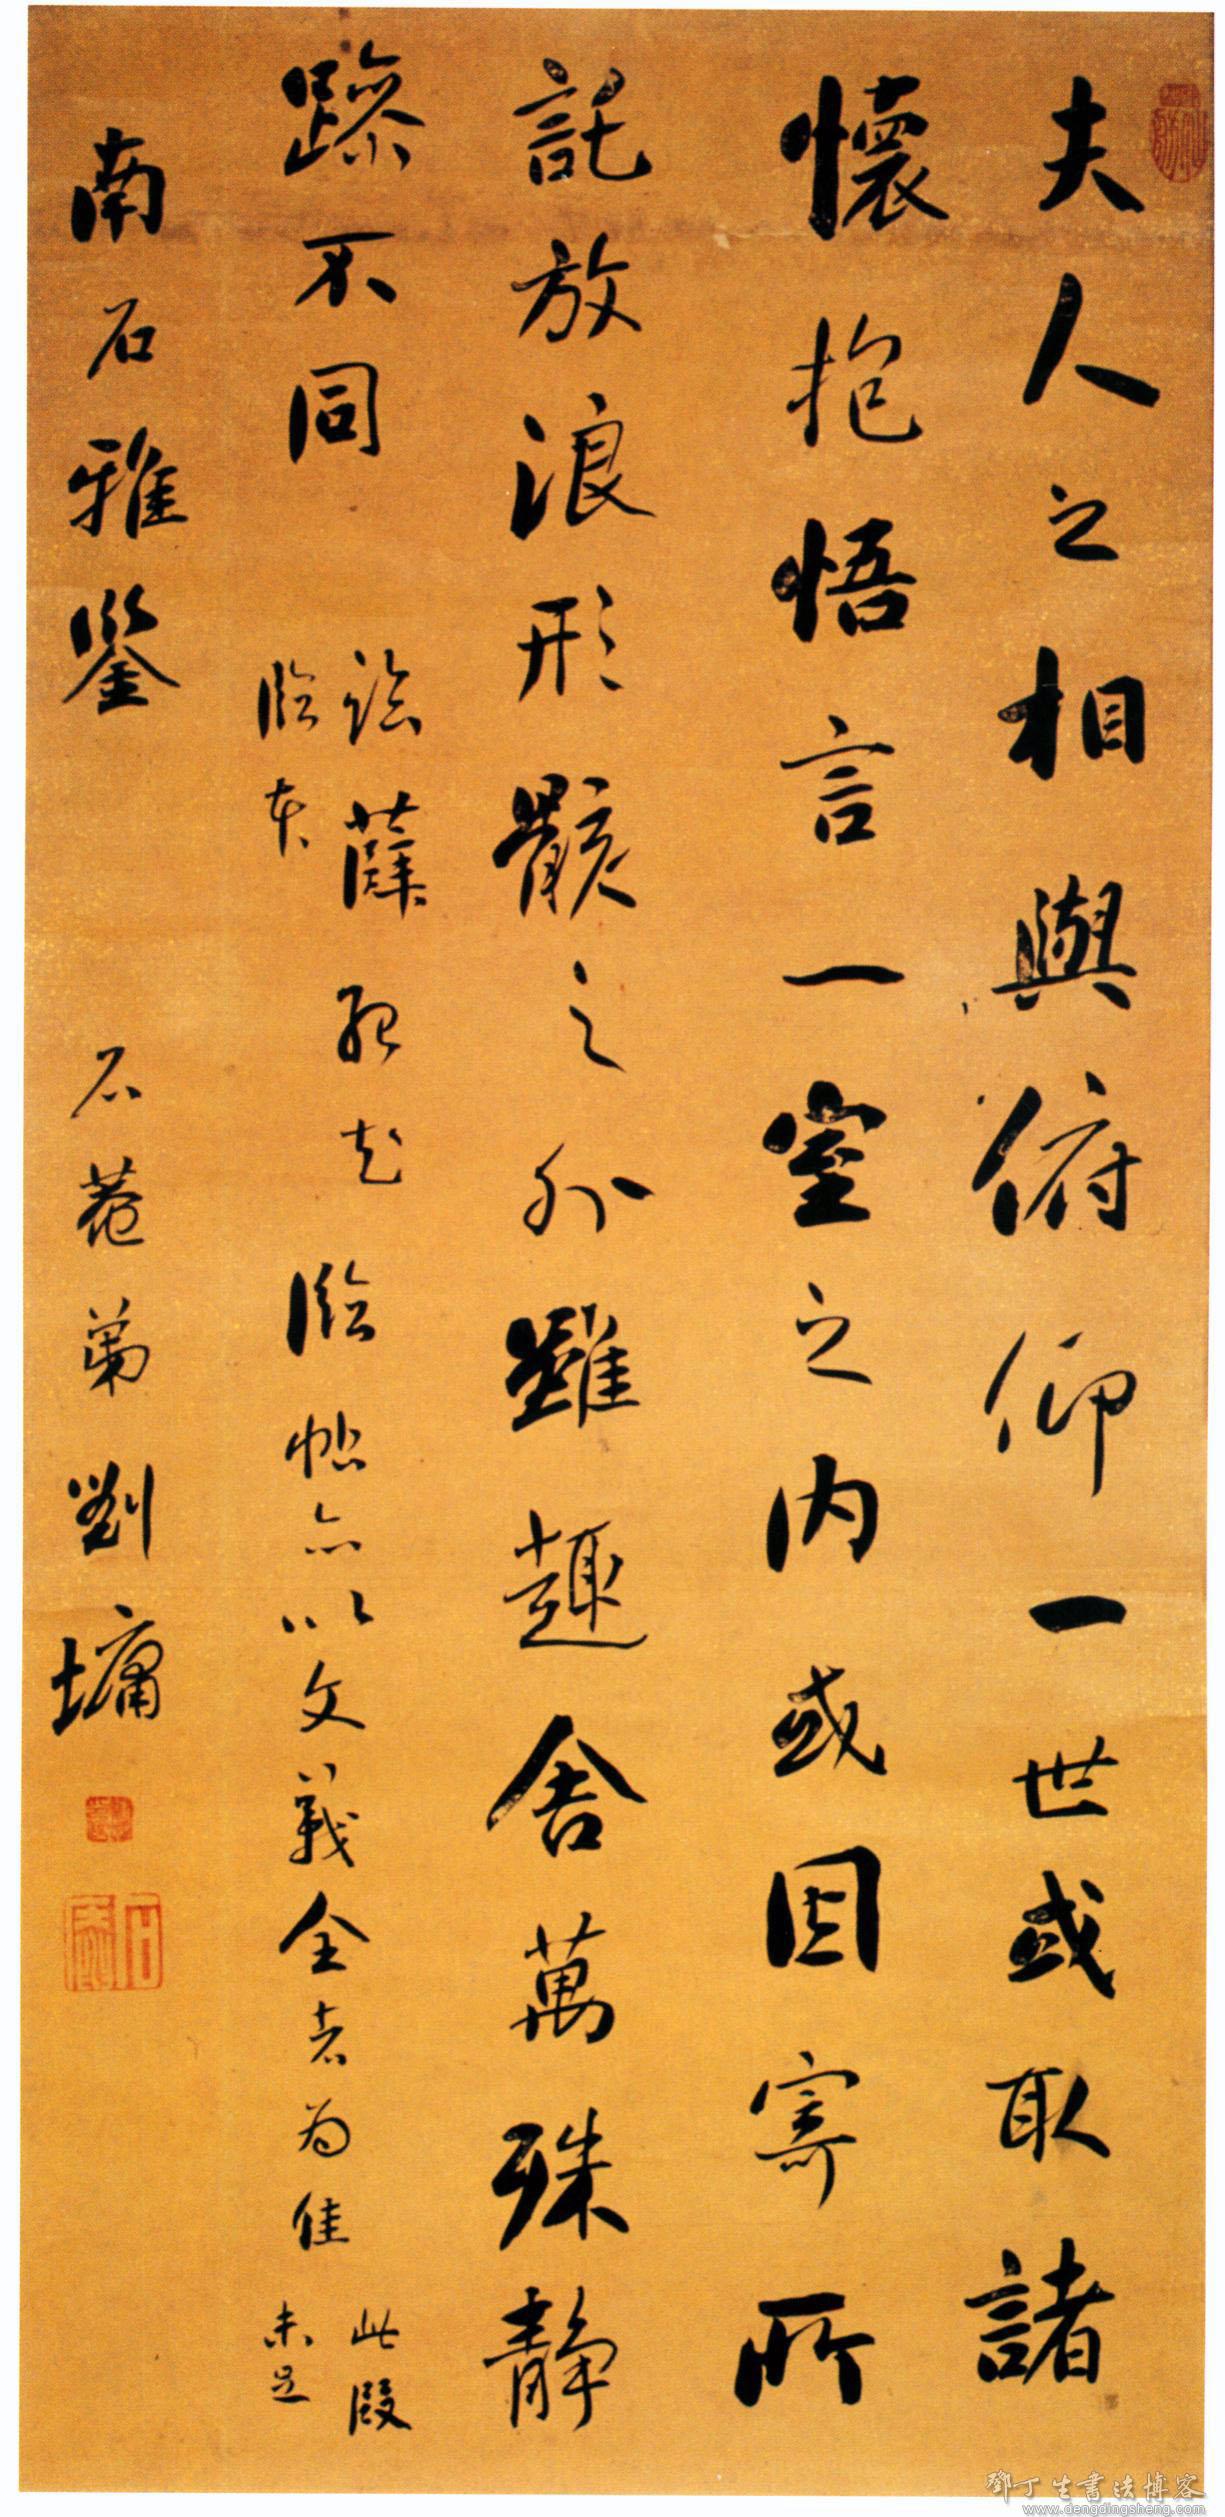 夫人之相與俯仰一世或取諸
懷抱悟言一室之内或因寄所
託放浪形骸之外雖趣舍萬殊静
躁不同
論薛紹彭
臨本
臨帖亦以文義全者為佳
此段
未足
南石雅鑒
石菴弟劉墉
鄧丁生書法博客
www.dengdingsheng.com